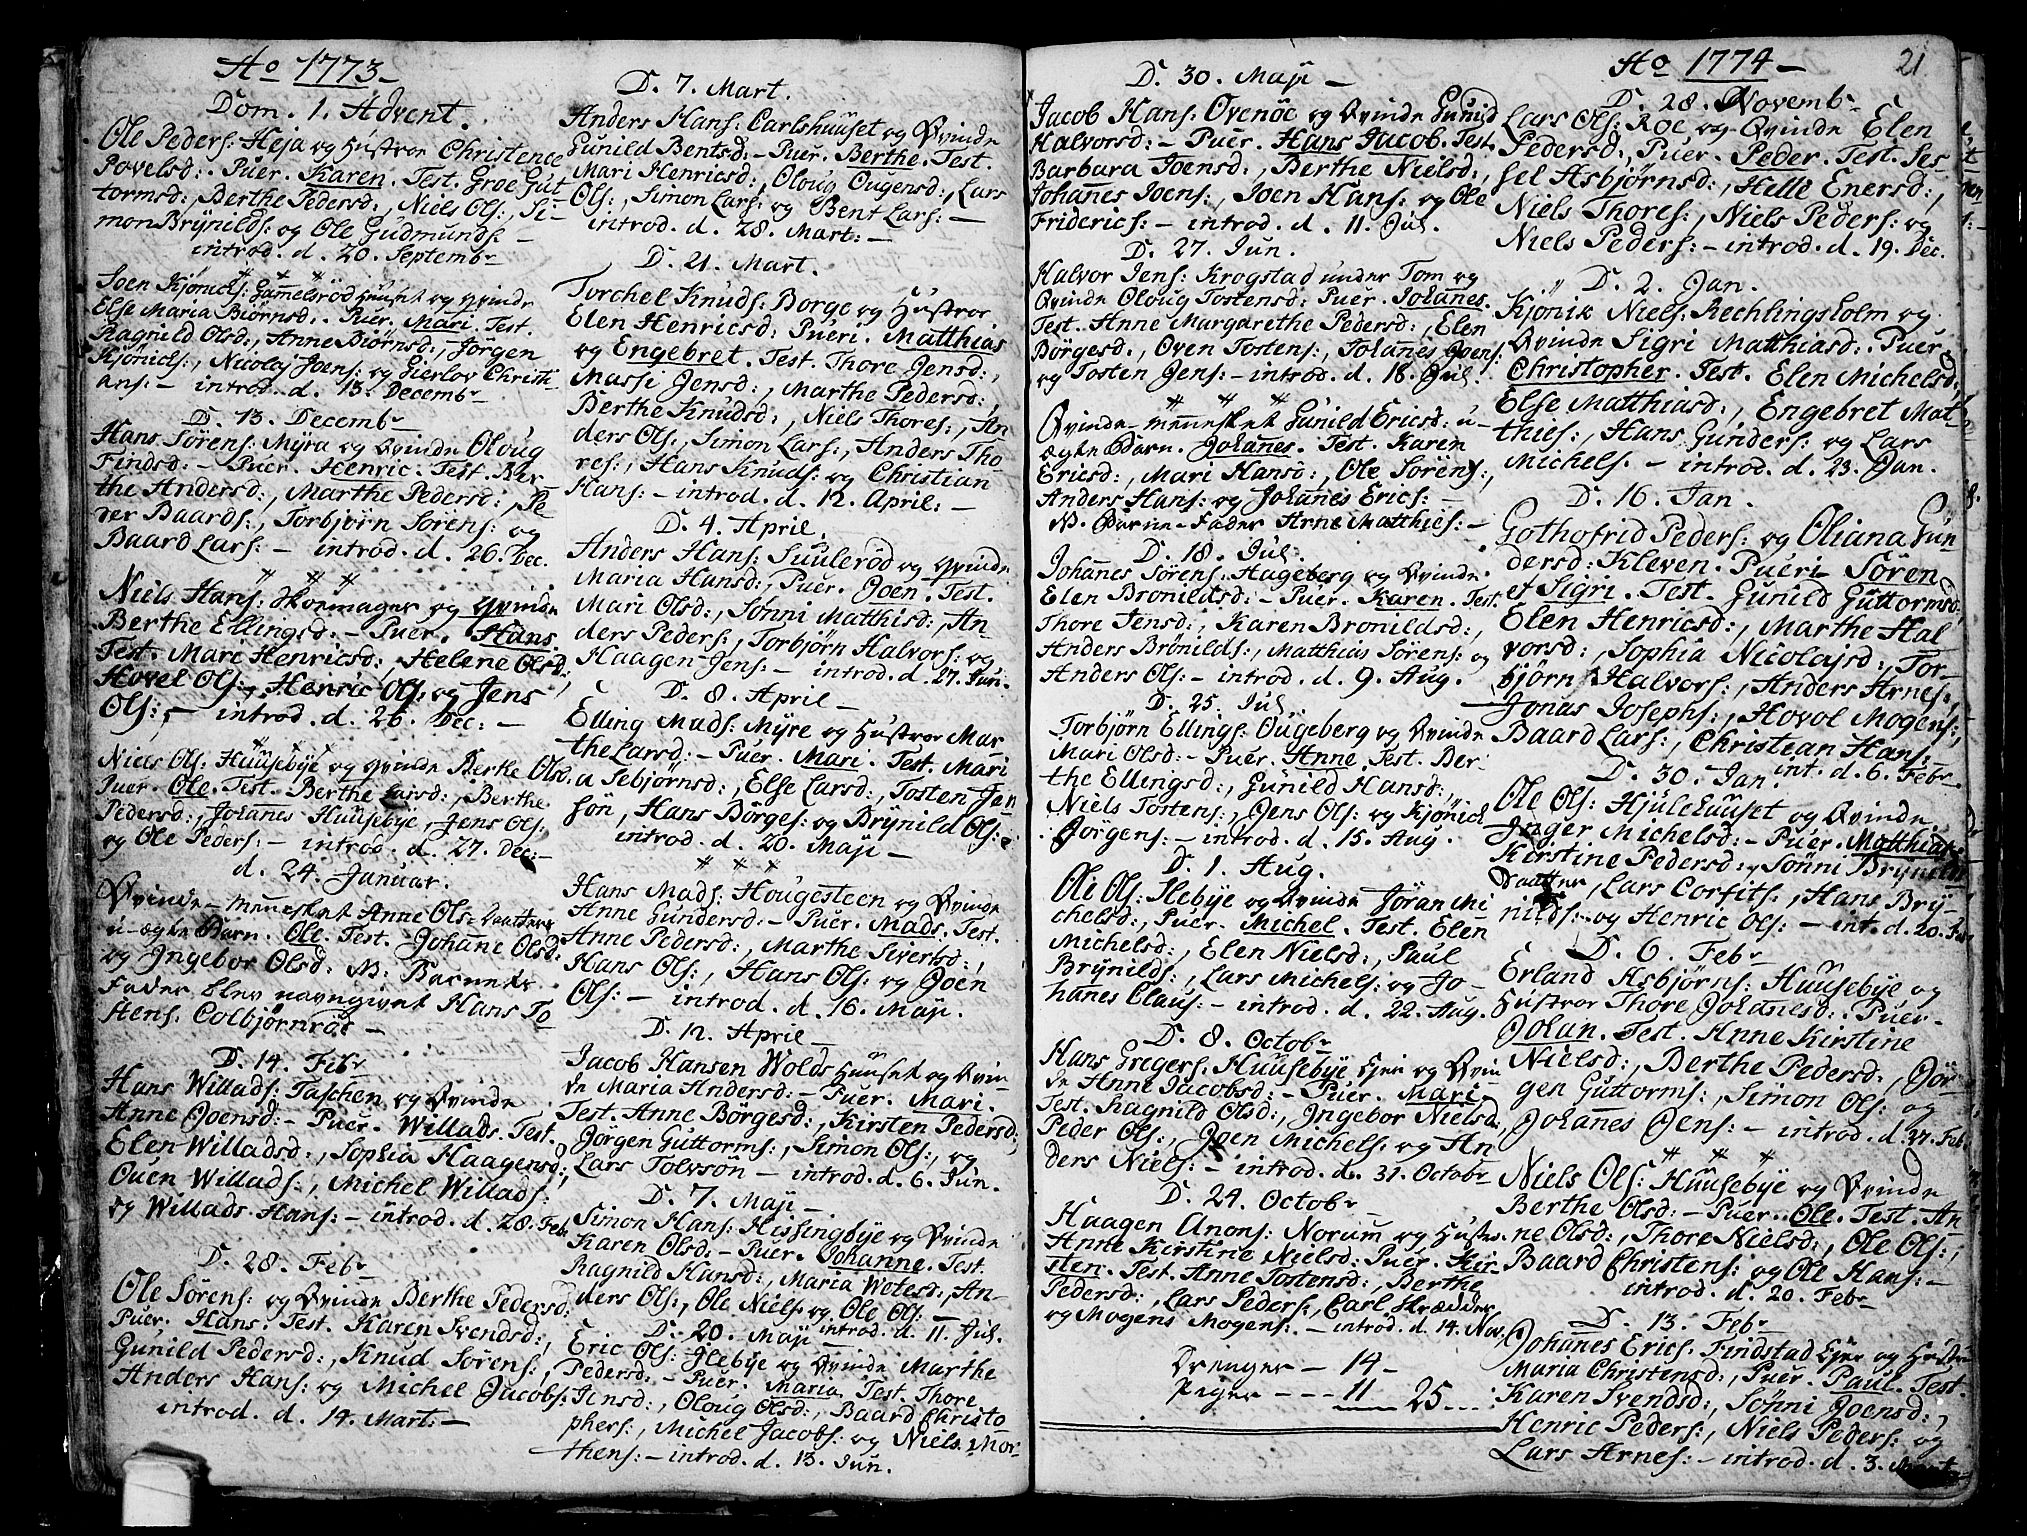 Ao 1773
Dom. 1. Advent.
Ole Peders: Heja og Hustroe Christence
Povelsd: Puer. Karen. Test. Groe Gut
tormsd:, Berthe Pedersd:, Niels Ols:, Si-
mon Brÿnilds: og Ole Gudmunds: -
introd. d. 20. Septembr
Soen Kjönichs: Gammelsröd Huuset og Qvinde
Else Maria Biörnsd: Puer. Mari. Test.
Ragnild Olsd:, Anne Biörnsd:, Jörgen
Kjönichs:, Nicolaj Joens: og Gierlov Christi
ans: - introd. d. 13. Decembr
D. 13. Decembr
Hans Sörens: Myra og Qvinde Oloug
Findsd: - Puer. Henric. Test. Ber-
the Andersd:, Marthe Pedersd:, Pe-
der Baards:, Torbjörn Sörens: og
Baard Lars: - introd. d. 26. Dec.
Niels Hans: Skoemager og Qvinde
Berthe Ellingsd: - Puer. Hans.
Test. Mari Henricsd:, Helene Olsd:,
Hovel Ols:, Henric Ols: og Jens
Ols: - introd. d. 26. Dec: -
Niels Ols: Huusebÿe og Qvinde Berthe Olsd.
Puer. Ole. Test. Berthe Larsd:, Berthe
Pedersd:, Johanes Huusebÿe, Jens Ols:
og Ole Peders: - introd. d. 27. Dec: -
d. 24. Januar.
Qvinde-mennesket Anne Ols: Daatters
u-ægte Barn. Ole. Test. Johanne Olsd:
og Ingebor Olsd: NB: Barnets
Fader blev navngivet Hans To
stens: Colbjörnröd -
D. 14. Febr
Hans Willads: Taschen og Qvinde
Anne Joensd: - Puer. Willads. Test.
Elen Willadsd:, Sophia Haagensd:,
Ouen Willads:, Michel Willads:
og Willads Hans: - introd. d. 28. Feb.
D. 28. Febr
Ole Sörens: og Qvinde Berthe Pedersd:
Puer. Hans. Test. Karen Svendsd:,
Gunild Pedersd:, Knud Sörens:,
Anders Hans: og Michel Jacobs:
introd. d. 14. Mart: -
D. 7. Mart.
Anders Hans: Carlshuuset og Qvinde
Gunild Bentsd: - Puer. Berthe. Test.
Mari Henricsd:, Oloug Ougensd:, Lars
Ols:, Simon Lars: og Bent Lars: -
introd. d. 28. Mart: -
D. 21. Mart.
Torchel Knuds: Borge og Hustroe
Elen Henricsd: Pueri. Matthias
og Engebret. Test. Thore Jensd:,
Massi Jensd:, Marthe Pedersd:,
Berthe Knudsd:, Niels Thores:, An-
ders Ols:, Simon Lars:, Anders Tho
res:, Hans Knuds: og Christian
Hans: - introd. d. 12. April: -
D. 4. April.
Anders Hans: Suuleröd og Qvinde
Maria Hansd:, Puer. Joen. Test.
Mari Olsd:, Sönni Matthisd:, An-
ders Peders:, Torbjörn Halvors: og
Haagen Jens: - introd. d. 27. Jun.
D. 8. April -
Elling Mads: Mÿre og Hustroe Mar
the Larsd: - Puer. Mari. Test. Mari
a Sebjörnsd:, Else Larsd:, Tosten Jen
sön, Hans Börges: og Brÿnild Ols:
introd. d. 20. Maji -
Hans Mads: Hougesteen og Qvinde
Anne Gundersd: - Puer. Mads. Test.
Anne Pedersd:, Marthe Siversd:,
Hans Ols:, Hans Ols: og Joen
Ols: - introd. d. 16. Maji.
D. 12. April -
Jacob Hansen Wolds Huuset og Qvin-
de Maria Andersd: - Puer. Mari.
Test. Anne Börgesd:, Kirsten Pedersd:,
Jörgen Guttorms:, Simon Ols:, og
Lars Tolvsön - introd. d. 6. Jun.
D. 7. Maji -
Simon Hans: Hissingbÿe og Qvinde
Karen Olsd: - Puer. Johanne. Test.
Ragnild Hansd:, Maria Wetesd:, An-
ders Ols:, Ole Niels: og Ole Ols: -
introd. d. 11. Jul.
D. 20. Maji -
Eric Ols: Ilebÿe og Qvinde Marthe
Pedersd: - Puer. Maria. Test. Thore
Jensd:, Oloug Olsd:, Baard Christo
phers:, Michel Jacobs: og Niels Mor-
thens: - introd. d. 13. Jun.
D. 30. Maji -
Jacob Hans: Ovenöe og Qvinde Gunild
Halvorsd: - Puer. Hans Jacob. Test.
Barbara Joensd:, Berthe Nielsd:,
Johanes Joens:, Joen Hans: og Ole
Friderics: - introd. d. 11. Jul.
D. 27. Jun.
Halvor Jens: Krogstad under Tom og
Qvinde Oloug Tostensd: Puer. Johanes.
Test. Anne Margarethe Pedersd:, Elen
Börgesd:, Oven Tostens:, Johanes Joens:
og Tosten Jens: - introd. d. 18. Jul.
Qvinde-mennesket Gunild Ericsd: u-
ægte Barn. Johanes. Test. Karen
Ericsd:, Mari Hansd:, Ole Sörens:,
Anders Hans: og Johanes Erics: -
NB. Barne-Fader Arne Matthies: -
D. 18. Jul.
Johanes Sörens: Hageberg og Qvinde
Elen Bronildsd: - Puer. Karen. Test.
Thore Jensd:, Karen Bronildsd:,
Anders Brönilds:, Matthias Sörens: og
Anders Ols: - introd. d. 9. Aug.
D. 25. Jul.
Torbjörn Ellings: Ougeberg og Qvinde
Mari Olsd: - Puer. Anne. Test. Ber-
the Ellingsd:, Gunild Hansd:,
Niels Tostens:, Jens Ols: og Kjönich
Jörgens: - introd. d. 15. Aug.
D. 1. Aug.
Ole Ols: Ilebÿe og Qvinde Jöran Mi
chelsd:, Puer. Michel. Test. Elen
Michelsd:, Elen Nielsd:, Paul
Brÿnilds:, Lars Michels: og Jo-
hanes Claus: - introd. d. 22. Aug.
D. 8. Octobr
Hans Gregers: Huusebÿe Ejer og Qvin
de Anne Jacobsd: - Puer. Mari.
Test. Ragnild Olsd:, Ingebor Nielsd.,
Peder Ols:, Joen Michels: og An
ders Niels: - introd. d. 31. Octobr
D. 24. Octobr
Haagen Anons: Norum og Hustr.
Anne Kirstine Nielsd: Puer. Kir
sten. Test. Anne Tostensd:, Berthe
Pedersd:, Lars Peders:, Carl Skrædder
og Mogens Mogens: - introd. d. 14. Nov.
Drenger - 14 -
Piger - - - 11
25
Ao 1774 -
21
D. 28. Novembr
Lars Ols: Roe og Qvinde Elen
Pedersd:, Puer. Peder. Test. Ses-
sel Asbjörnsd:, Helle Enersd:,
Niels Thores:, Niels Peders: og
Niels Peders: - introd. d. 19. Dec.
D. 2. Jan.
Kjönik Niels: Rechlingsholm og
Qvinde Sigri Matthiasd: Puer
Christopher. Test. Elen Michelsd:,
Else Matthiasd:, Engebret Mat-
thies:, Hans Gunders: og Lars
Michels. - introd. d. 23. Jan.
D. 16. Jan.
Gothofrid Peders: og Oliana Gun
dersd: Kleven. Pueri Sören
et Sigri. Test. Gunild Guttormsd:,
Elen Henricsd:, Marthe Hal
vorsd:, Sophia Nicolajsd:, Tor-
björn Halvors:, Anders Arnes:,
Jonas Josephs:, Hovol Mogens:,
Baard Lars:, Christian Hans:
int. d. 6. Febr
D. 30. Jan.
Ole Ols: Hjulehuuset og Qvinde
Inger Michelsd: - Puer. Matthias.
Kirstine Pedersd:, Sönni Brÿnilds
Daatter, Lars Corfits:, Hans Brÿ-
nilds: og Henric Ols: - int. d. 20. Feb.
D. 6. Febr
Erland Asbjörns: Huusebÿe og
Hustroe Thore Johanesd: Puer.
Johan. Test. Anne Kirstine
Nielsd:, Berthe Pedersd:, Jör-
gen Guttorms:, Simon Ols: og
Johanes Jens: - introd. d. 27. Feb.
Niels Ols: Huusebÿe og Qvinde
Berthe Olsd: - Puer. Ole. Test. An
ne Olsd:, Thore Nielsd:, Ole Ols:,
Baard Christens: og Ole Hans: -
introd. d. 20. Febr
D. 13. Febr
Johanes Erics: Findstad Ejer og Hustr.
Maria Christensd:, Puer. Paul. Test.
Karen Svendsd:, Sönni Joensd:,
Henric Peders:, Niels Peders: og
Lars Arnes: - introd. d. 3. Martz